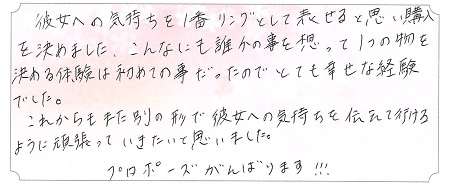 彼女への気持ちを1番リングとして表せると思い購入
を決めました。こんなにも誰かの事を想って1つの物を
決める体験は初めての事だったのでとても幸せな経験
でした。
これからもまた別の形で彼女への気持ちを伝えて行ける
ように頑張っていきたいと思いました。
プロポーズがんばります!!!